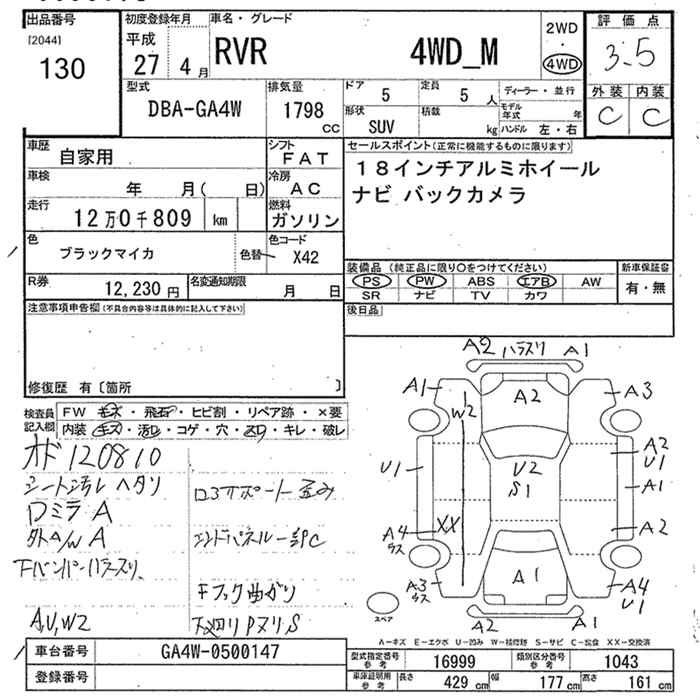 出品番号 初度登録年月 車名・グレード 評価点
[2044] 平成 RVR 4WD_M 2WD ・ 4WD 3.5
130 27 4月
型式 排気量 ドア 5 定員 5人 ディーラー・並行 外装 内装
DBA-GA4W 1798 cc 形状 SUV 積載 kg モデル年式 年 C C
ハンドル 左・右
車歴 自家用 シフト FAT セールスポイント(正常に機能するものに限ります)
車検 年 月( 日) 冷房 AC 18インチアルミホイール
走行 12万0千809 km 燃料 ガソリン ナビ バックカメラ
色 ブラックマイカ 色替 色コード X42
装備品 (純正品に限り○をつけてください) 新車保証書
PS PW ABS エアB AW 有・無
R券 12,230円 名変通知期限 月 日 SR ナビ TV カワ
注意事項申告欄(不具合内容等は具体的に記入して下さい) 後日品
修復歴 有〔箇所 〕
検査員記入欄 FW キズ・飛石・ヒビ割・リペア跡・×要
内装 キズ・汚れ・コゲ・穴・凹・キレ・破レ
オド 120810
シート汚れ ヘタリ
ロミラ A
A,U,W2
A2 ハラスリ A1
A1 A2 A3
W2
A2
U1 U2 U1
S1 A1
A4 XX A2
A3 A1 A4
U1
スペア A2 A1
A-キズ E-エクボ U-凹み W-補修跡 S-サビ C-腐食 XX-交換済
車台番号 GA4W-0500147 型式指定番号 参考 16999 類別区分番号 参考 1043
登録番号 車庫証明用 参考 長さ 429 cm 幅 177 cm 高さ 161 cm